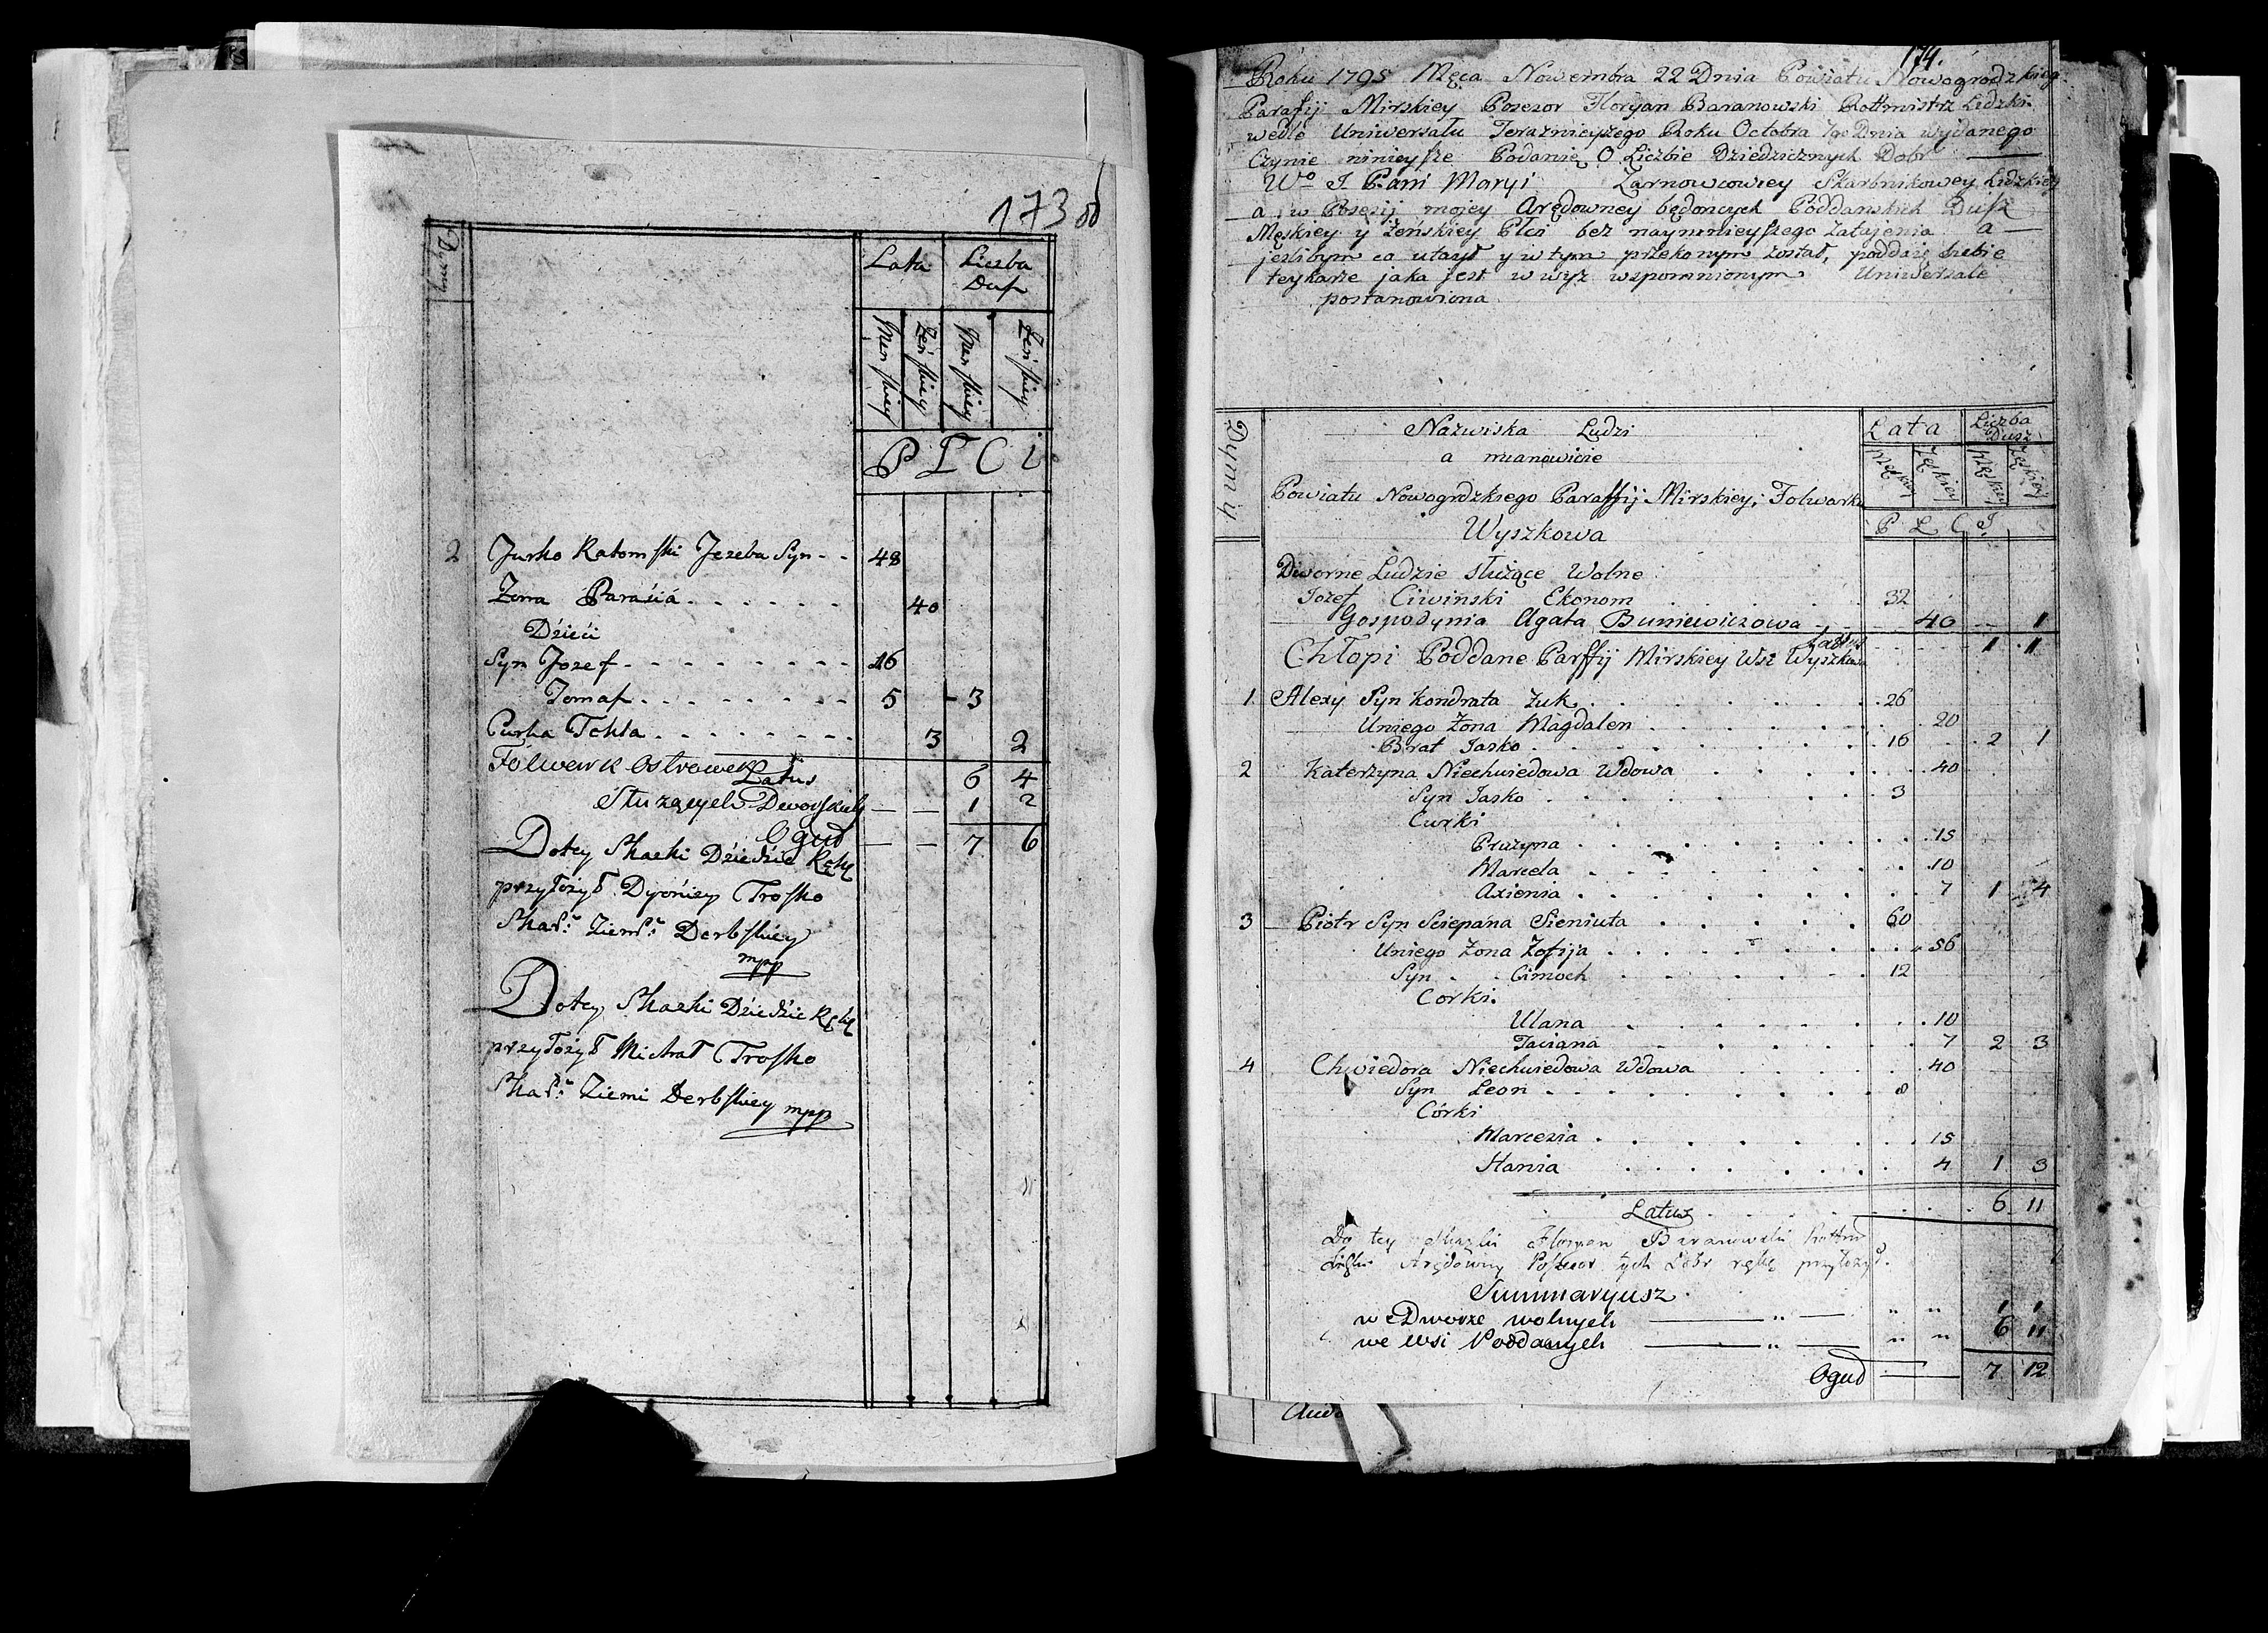 173 об
Dymy
Lata Liczba Dusz
Męskiey Żeńskiey Męskiey Żeńskiey
PŁCi
2 Jurko Ratomski Jezeba Syn 48
Żona Parasia 40
Dzieci
Syn Jozef 16
Tomasz 5 3
Curka Tekla 3 2
Latus 6 4
Folwark Ostrowek
Służących Dworskich — — 1 2
Oguł — — 7 6
Do tey Skazki Dziedzic Rękę
przyłożył Dyonizy Trosko
Skar: Ziem: Derbskiey
mpp
Do tey Skazki Dziedzic Rękę
przyłożył Michał Trosko
Skar: Ziemi Derbskiey mpp
174.
Roku 1795 Męca Nowembra 22 Dnia Powiatu Nowogrodzkiego
Parafij Mirskiey Posesor Floryan Baranowski Rottmistrz Lidzki
wedle Uniwersału Teraznieyszego Roku Octobra 7go Dnia wydanego
Czynie ninieysze Podanię O Liczbie Dziedzicznych Dobr
Wo J Pani Maryi Żarnowcowiey Skarbnikowey Lidzkiey
a w Posesij mojey Arędowney będoncych Poddanskich Dusz
Męskiey y Żeńskiey Płci bez naymnieyszego Zatajenia a
jeslibym co utaył y w tym przekonym został, poddaię siebie
teykarze jaka jest w wyz wspomnionym Uniwersale
postanowiona
Dymiy
Nazwiska Ludzi
a mianowicie
Lata Liczba Dusz
Męskiey Żęskiey Męskiey Żęskiey
PŁCI
Powiatu Nowogrdzkiego Paraffij Mirskiey, Folwarku
Wyszkowa
Dworne Ludzie służące Wolne
Jozef Ciwiński Ekonom 32
Gospodynia Agata Buniewiczowa 40 — 1
Latus 1 1
Chłopi Poddane Parffij Mirskiey Wsi Wyszkowa
1 Alexy Syn Kondrata Żuk 26
Uniego Żona Magdalen 20
Brat Jasko 16 2 1
2 Katerzyna Niechwiedowa Wdowa 40
Syn Jasko 3
Curki
Pruzyna 15
Marcela 10
Axienia 7 1 4
3 Piotr Syn Sciepana Sieniuta 60
Uniego Żona Zofija 56
Syn Cimoch 12
Corki.
Ulana 10
Taciana 7 2 3
4 Chwiedora Niechwiedowa Wdowa 40
Syn Leon 8
Córki
Marcezia 15
Hania 4 1 3
Latus 6 11
Do tey Skazki Floryan Baranowski Rottm
Lidzki Arędowny Possesor tych Dobr rękę przyłożył.
Summaryusz
w Dworze wolnych " — " " 1 1
we wsi Poddanych " — " " 6 11
Oguł 7 12